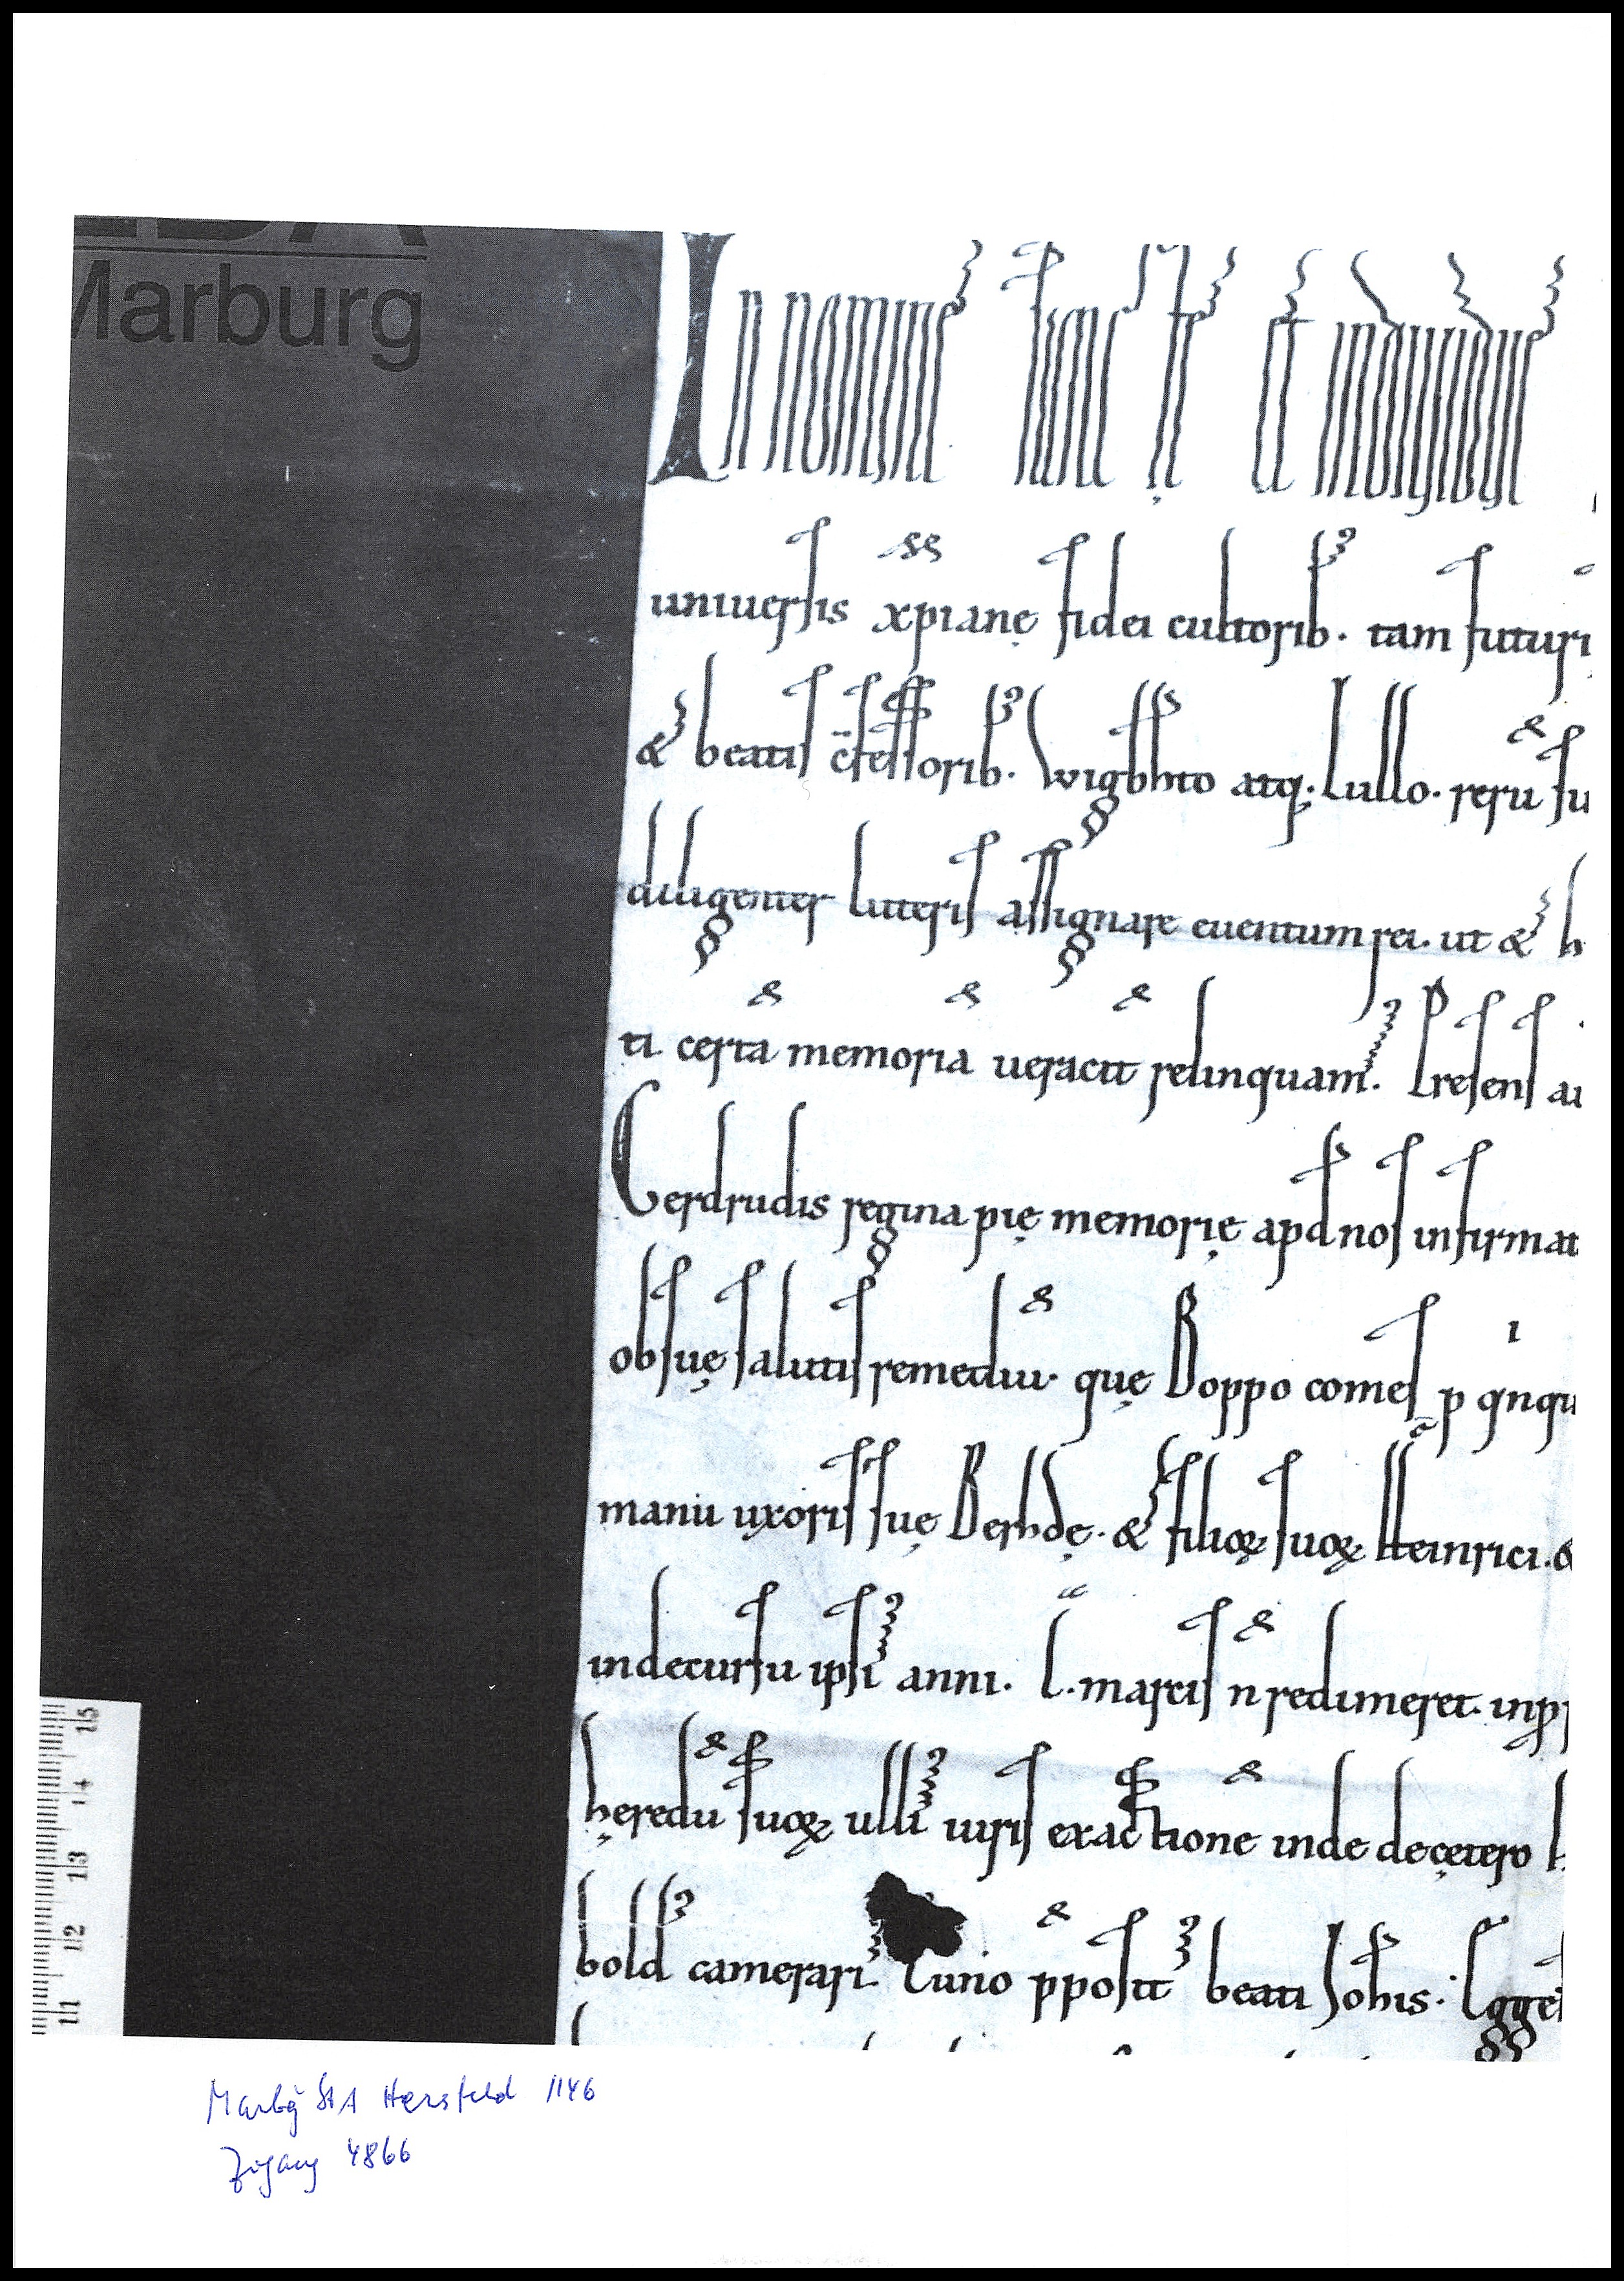 Marburg
In nomine sanc te et indiuidue
uniuersis xpiane fidei cultorib. tam futuri
& beatis c̄fessorib. Wigbhto atq; Lullo. rerū su
diligenter litteris assignare euentum rei. ut & h
ti certa memoria ueracit relinquam. Presens au
Gerdrudis regina pię memorię apd nos infirmat
ob suę salutis remediū. quę Boppo comes p qnqu
manū uxoris suę Berhdę. & filioꝝ suoꝝ Heinrici. &
in decursu ipsi anni. L. marcis n redimeret. in pr
heredū suoꝝ ulli iuris exactione inde de cetero h
bold camerari Cuno pposit beati Iohis. Egge
15
14
13
12
11
Marbg StA Hersfeld 1146
Zugang 4866